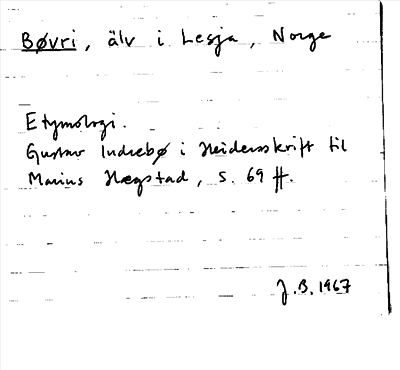 Bøvri, älv i Lesja, Norge
Etymologi.
Gustav Indrebø i Heidersskrift til
Marius Hægstad, s. 69 ff.
J.B. 1967